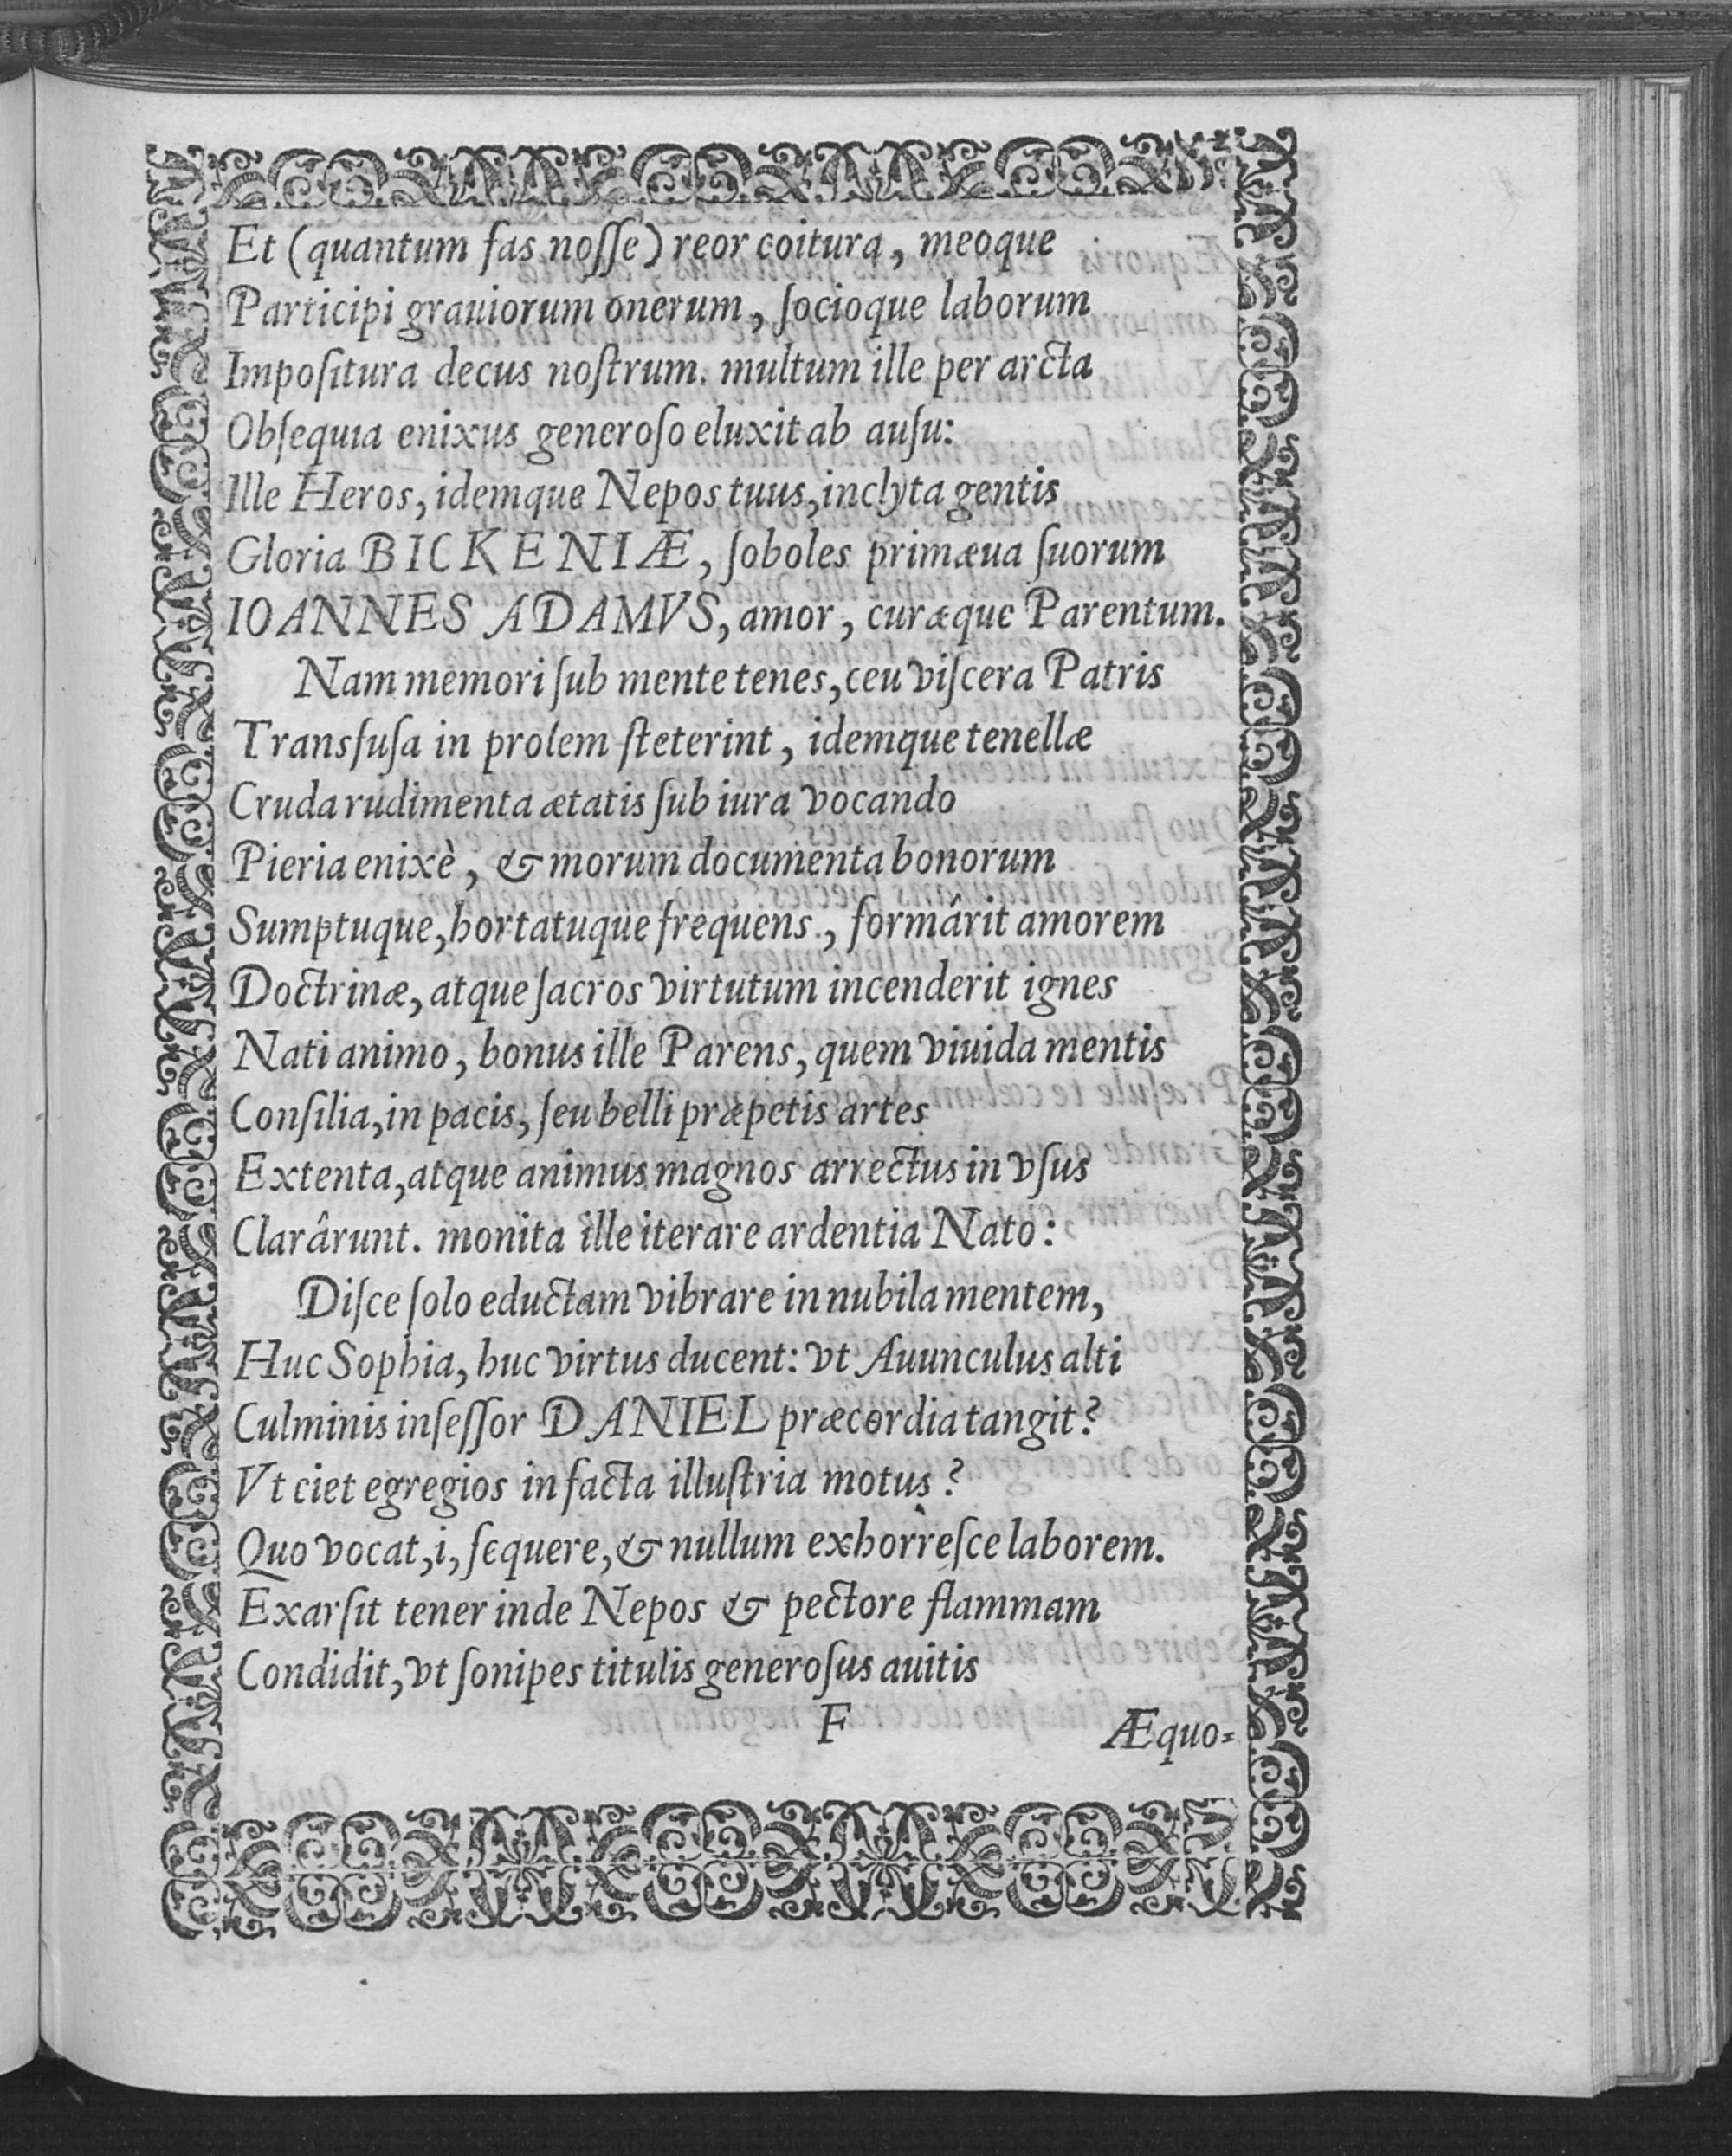 Et (quantum fas noſſe) reor coitura, meoque
Participi grauiorum onerum, ſocioque laborum
Impoſitura decus noſtrum. multum ille per arcta
Obſequia enixus generoſo eluxit ab auſu:
Ille Heros, idemque Nepos tuus, inclyta gentis
Gloria BICKENIÆ, ſoboles primæua ſuorum
IOANNES ADAMVS, amor, curæque Parentum.
Nam memori ſub mente tenes, ceu viſcera Patris
Transfuſa in prolem ſteterint, idemque tenellæ
Cruda rudimenta ætatis ſub iura vocando
Pieria enixè, & morum documenta bonorum
Sumptuque, hortatuque frequens, formârit amorem
Doctrinæ, atque ſacros virtutum incenderit ignes
Nati animo, bonus ille Parens, quem viuida mentis
Conſilia, in pacis, ſeu belli præpetis artes
Extenta, atque animus magnos arrectus in vſus
Clarârunt. monita ille iterare ardentia Nato:
Diſce ſolo eductam vibrare in nubila mentem,
Huc Sophia, huc virtus ducent: vt Auunculus alti
Culminis inſeſſor DANIEL præcordia tangit?
Vt ciet egregios in facta illuſtria motus?
Quo vocat, i, ſequere, & nullum exhorreſce laborem.
Exarſit tener inde Nepos & pectore flammam
Condidit, vt ſonipes titulis generoſus auitis
F Æquo-